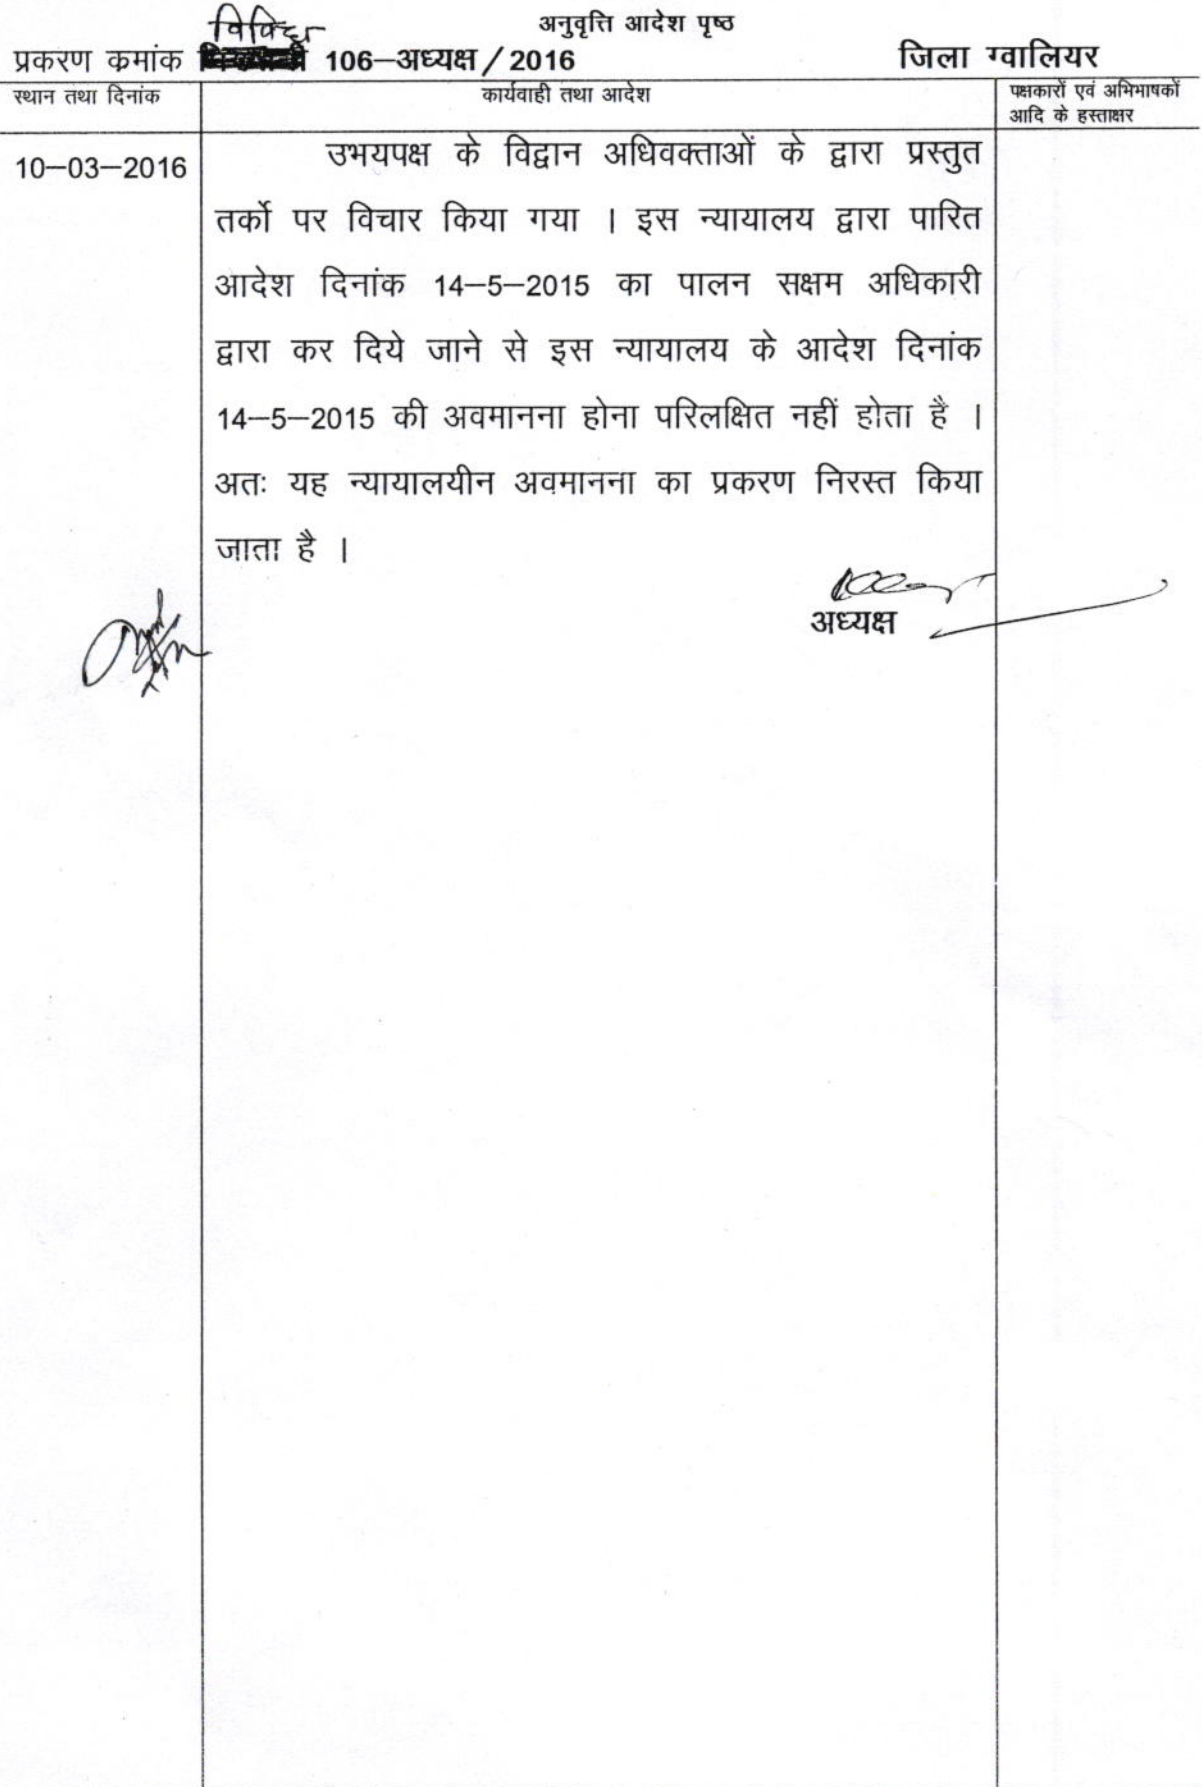 अनुवृत्ति आदेश पृष्ठ
विविध
प्रकरण कमांक 106—अध्यक्ष / 2016 जिला ग्वालियर
स्थान तथा दिनांक कार्यवाही तथा आदेश पक्षकारों एवं अभिभाषकों
आदि के हस्ताक्षर
10—03—2016 उभयपक्ष के विद्वान अधिवक्ताओं के द्वारा प्रस्तुत
तर्को पर विचार किया गया । इस न्यायालय द्वारा पारित
आदेश दिनांक 14—5—2015 का पालन सक्षम अधिकारी
द्वारा कर दिये जाने से इस न्यायालय के आदेश दिनांक
14—5—2015 की अवमानना होना परिलक्षित नहीं होता है ।
अतः यह न्यायालयीन अवमानना का प्रकरण निरस्त किया
जाता है ।
अध्यक्ष